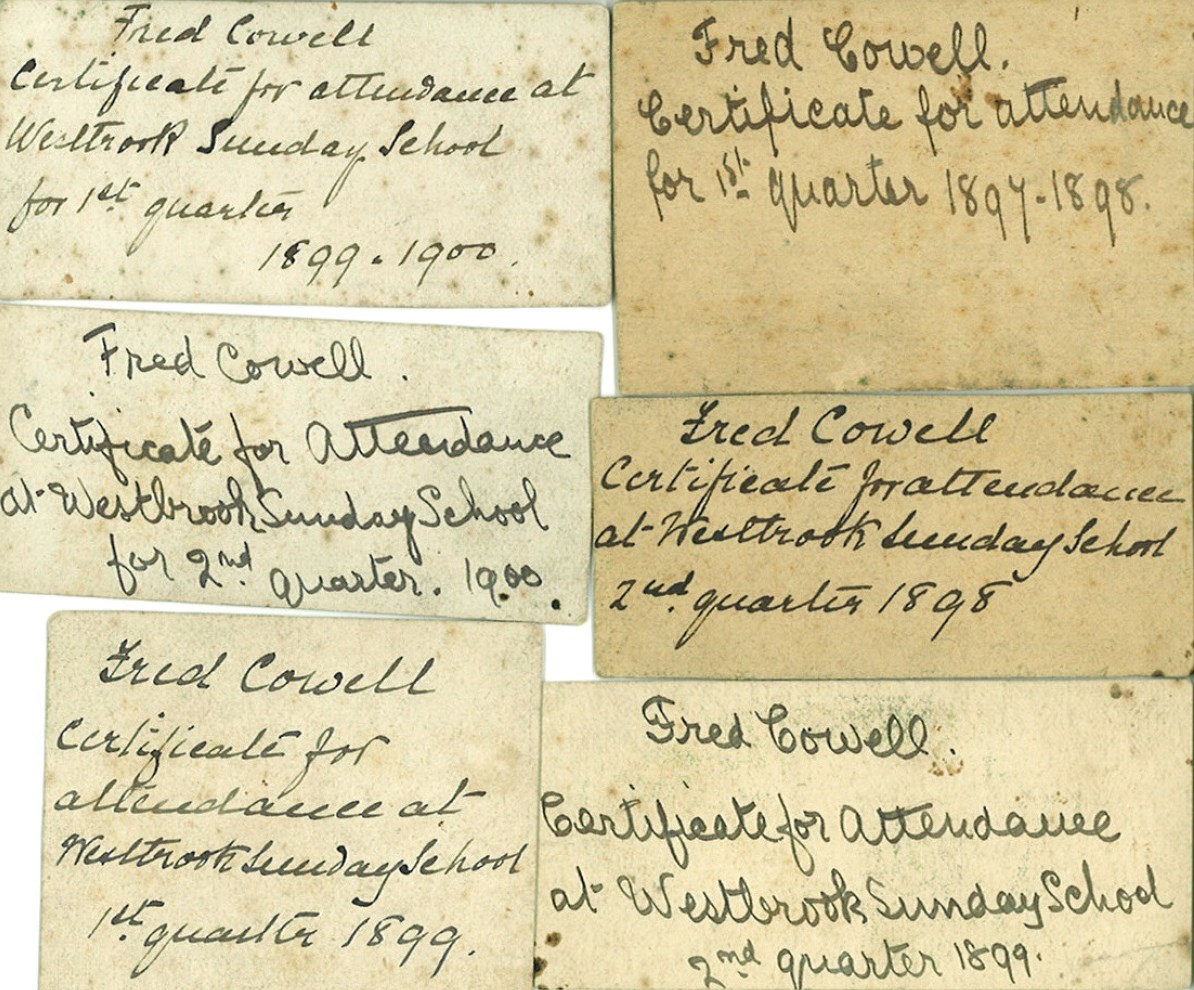 Fred Cowell
Certificate for attendance at
Westbrook Sunday School
for 1st quarter
1899-1900.
Fred Cowell.
Certificate for attendance
for 1st quarter 1897-1898.
Fred Cowell.
Certificate for Attendance
at Westbrook Sunday School
for 2nd quarter. 1900.
Fred Cowell
Certificate for attendance
at Westbrook Sunday School
2nd quarter 1898
Fred Cowell
Certificate for
attendance at
Westbrook Sunday School
1st quarter 1899.
Fred Cowell.
Certificate for Attendance
at Westbrook Sunday School
2nd quarter 1899.